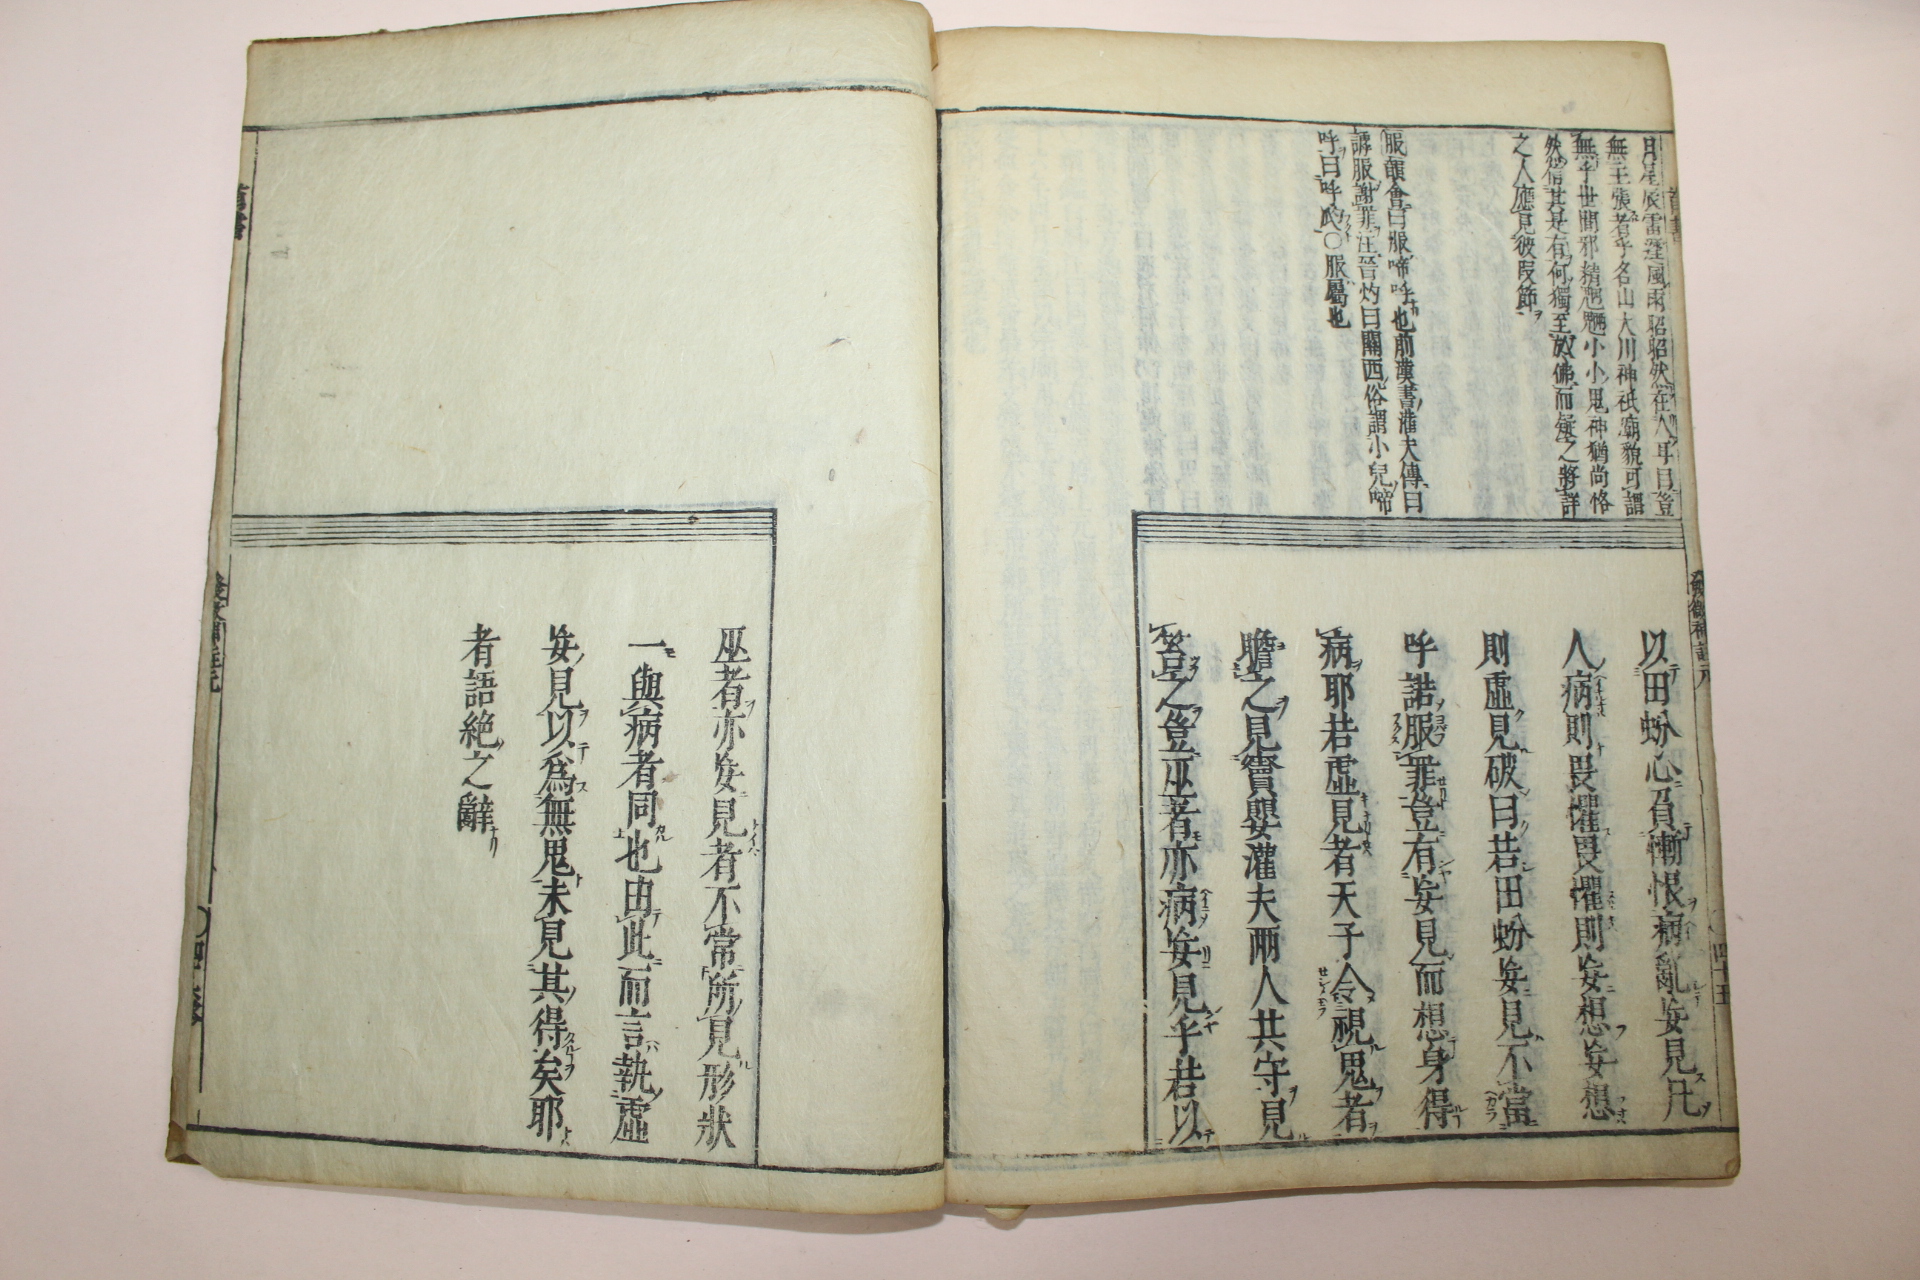 月星辰雷霆風雨昭昭然在人耳目豈
無主張者乎名山大川神祇廟貌可謂
無乎世間邪精魍魎小小鬼神猶尚恪
然信其是有何獨至於佛而疑之將詳
之人應見彼段節
服韻會曰服啼呼也前漢書灌夫傳曰
謼服謝罪注晉灼曰關西俗謂小兒啼
呼曰呼㼎〇服屬也
以田蚡心負慚恨病亂妄見凡
人病則畏懼畏懼則妄想妄想
則虛見破曰若田蚡妄見不當
呼諾服罪豈有妄見而想身得
病耶若虛見者天子令視鬼者
瞻之見竇嬰灌夫兩人共守見
笞之豈巫者亦病妄見乎若以
四十五
巫者亦妄見者不常所見形狀
一與病者同也由此而言執虛
妄見以爲無鬼未見其得矣耶
者語絶之辭